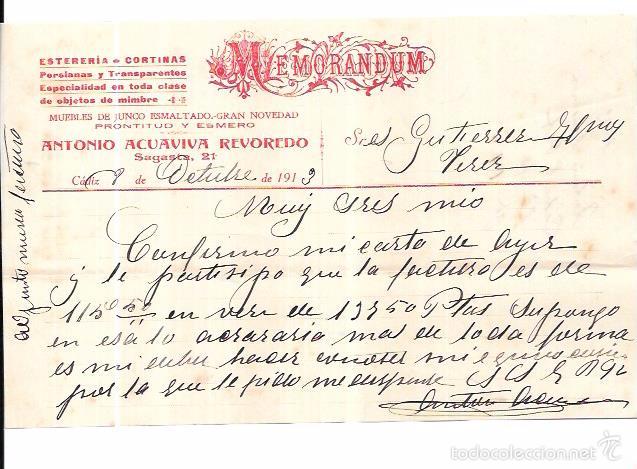 ESTERERÍA - CORTINAS
Persianas y Transparentes
Especialidad en toda clase
de objetos de mimbre
MUEBLES DE JUNCO ESMALTADO.-GRAN NOVEDAD
PRONTITUD Y ESMERO
ANTONIO ACUAVIVA REVOREDO
Sagasta, 21
MEMORANDUM
Cádiz 9 de Octubre de 1913
Sres Gutierrez Hnos
Jerez
Muy sres mio
Confirmo mi carta de ayer
y le partisipo que la factura es de
115'50 en ves de 13250 Ptas supongo
en esa lo acraria mas de toda forma
es mi deber haser conoser mi
por lo que le pido me dispense S S
Antonio Acuaviva
adjunto nueva factura
todocoleccion.net